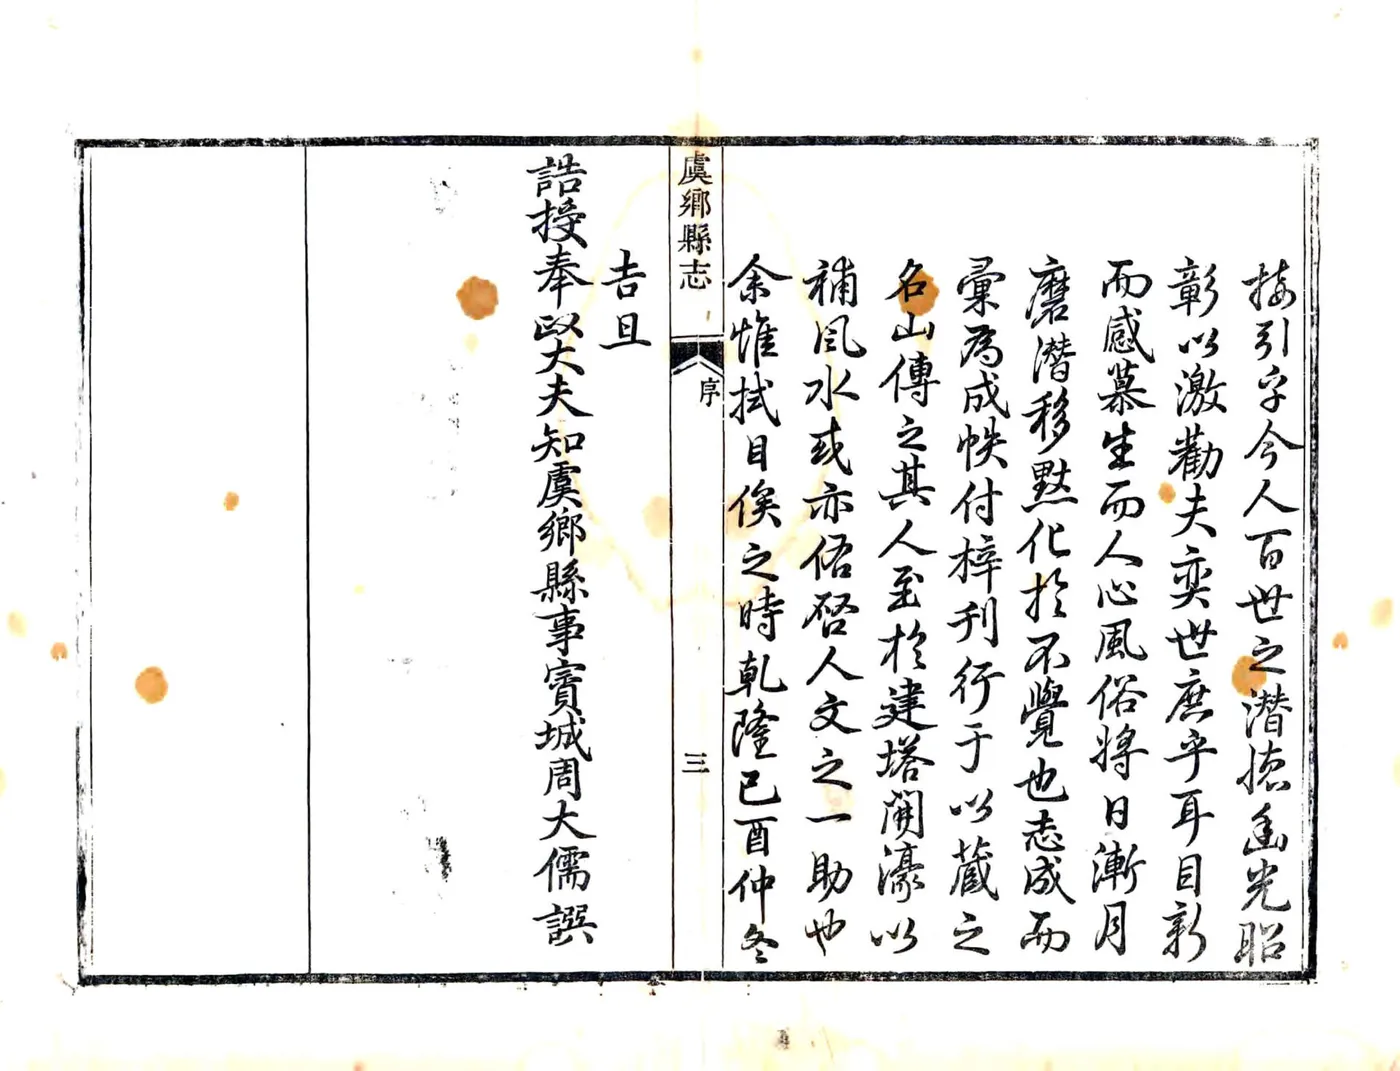 接引字今人百世之潛德幽光昭
彰以激勸夫奕世庶乎耳目新
而感慕生而人心風俗將日漸月
磨潛移黙化於不覺也志成而
彙為成帙付梓刊行于以蔵之
名山傳之其人至於建塔開濠以
補風水或亦佑啓人文之一助也
余惟拭目俟之時乾隆己酉仲冬
虞鄉縣志
序
三
吉旦
誥授奉政大夫知虞鄉縣事寶城周大儒譔